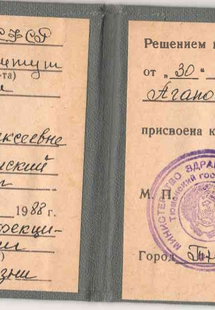 СФСР
нститут
та)
и
ксеевне
нский
1988 г.
оекци-
зни
Решением
от "30"
Агапо
присвоена к
МИНИСТЕРСТВО ЗДРА
Тюменский госу
М. П.
Город Тю